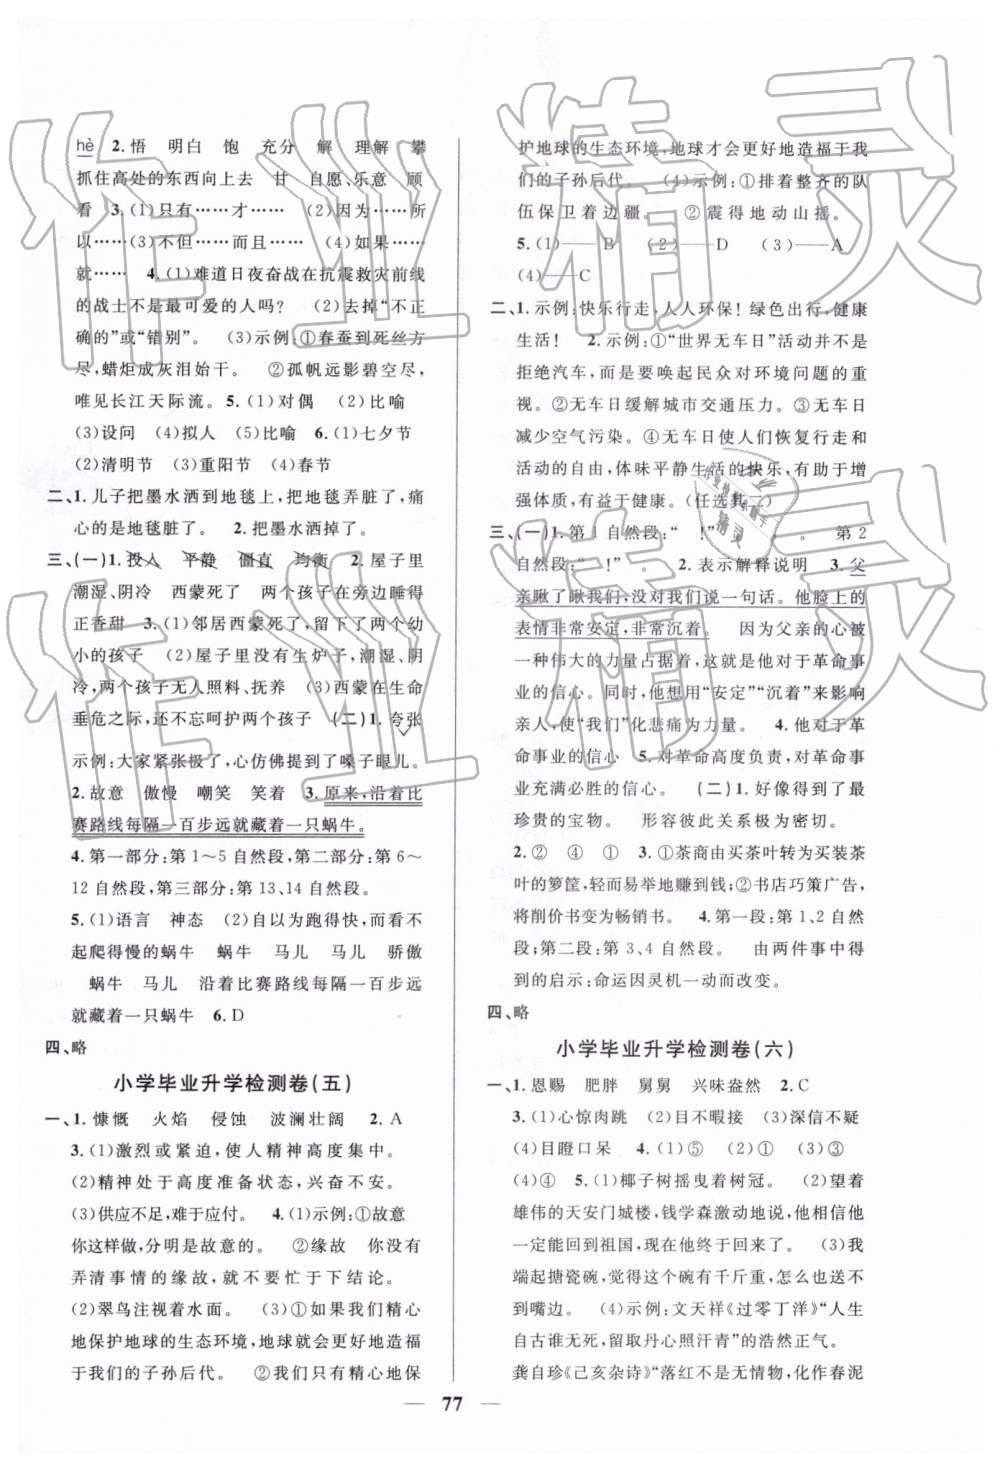 hè　2.悟　明白　饱　充分　解　理解　攀
抓住高处的东西向上去　甘　自愿、乐意　顾
看　3.(1)只有……才……　(2)因为……所
以……　(3)不但……而且……　(4)如果……
就……　4.(1)难道日夜奋战在抗震救灾前线
的战士不是最可爱的人吗?　(2)去掉“不正
确的”或“错别”。　(3)示例:①春蚕到死丝方
尽,蜡炬成灰泪始干。　②孤帆远影碧空尽,
唯见长江天际流。　5.(1)对偶　(2)比喻
(3)设问　(4)拟人　(5)比喻　6.(1)七夕节
(2)清明节　(3)重阳节　(4)春节
二、1.儿子把墨水洒到地毯上,把地毯弄脏了,痛
心的是地毯脏了。　2.把墨水洒掉了。
三、(一)1.投入　平静　僵直　均衡　2.屋子里
潮湿、阴冷　西蒙死了　两个孩子在旁边睡得
正香甜　3.(1)邻居西蒙死了,留下了两个幼
小的孩子　(2)屋子里没有生炉子,潮湿、阴
冷,两个孩子无人照料、抚养　(3)西蒙在生命
垂危之际,还不忘呵护两个孩子　(二)1.夸张
示例:大家紧张极了,心仿佛提到了嗓子眼儿。
2.故意　傲慢　嘲笑　笑着　3.原来,沿着比
赛路线每隔一百步远就藏着一只蜗牛。
4.第一部分:第1～5自然段,第二部分:第6～
12自然段,第三部分:第13、14自然段。
5.(1)语言　神态　(2)自以为跑得快,而看不
起爬得慢的蜗牛　蜗牛　马儿　马儿　骄傲
蜗牛　马儿　沿着比赛路线每隔一百步远
就藏着一只蜗牛　6.D
四、略
小学毕业升学检测卷(五)
一、1.慷慨　火焰　侵蚀　波澜壮阔　2.A
3.(1)激烈或紧迫,使人精神高度集中。
(2)精神处于高度准备状态,兴奋不安。
(3)供应不足,难于应付。　4.(1)示例:①故意
你这样做,分明是故意。　②缘故　你没有
弄清事情的缘故,就不要忙于下结论。
(2)翠鸟注视着水面。　(3)①如果我们精心
地保护地球的生态环境,地球就会更好地造福于
我们的子孙后代。　②只有我们精心地保
护地球的生态环境,地球才会更好地造福于我
们的子孙后代。　(4)示例:①排着整齐的队
伍保卫着边疆。　②震得地动山摇。
5.(1)——B　(2)——D　(3)——A
(4)——C
二、1.示例:快乐行走,人人环保! 绿色出行,健康
生活!　2.示例:①“世界无车日”活动并不是
拒绝汽车,而是要唤起民众对环境问题的重
视。②无车日缓解城市交通压力。③无车日
减少空气污染。④无车日使人们恢复行走和
活动的自由,体味平静生活的快乐,有助于增
强体质,有益于健康。(任选其二)
三、(一)1.第1自然段:“　!”　、　。　第2
自然段:“　!”　。　2.表示解释说明　3.父
亲瞅了瞅我们,没对我们说一句话。他脸上的
表情非常安定,非常沉着。　因为父亲的心被
一种伟大的力量占据着,这就是他对于革命事
业的信心。同时,他想用“安定”“沉着”来影响
亲人,使“我们”化悲痛为力量。　4.他对于革
命事业的信心　5.对革命高度负责,对革命事
业充满必胜的信心。　(二)1.好像得到了最
珍贵的宝物。　形容彼此关系极为密切。
2.②　④　①　3.①茶商由买茶叶转为买装茶
叶的箩筐,轻而易举地赚到钱;②书店巧策广告,
将削价书变为畅销书。　4.第一段:第1、2自然
段;第二段:第3、4自然段。　由两件事中得
到的启示:命运因灵机一动而改变。
四、略
小学毕业升学检测卷(六)
一、1.恩赐　肥胖　舅舅　兴味盎然　2.C
3.(1)心惊肉跳　(2)目不暇接　(3)深信不疑
(4)目瞪口呆　4.(1)⑤　(2)①　(3)③
(4)④　5.(1)椰子树摇曳着树冠。　(2)望着
雄伟的天安门城楼,钱学森激动地说,他相信他
一定能回到祖国,现在他终于回来了。　(3)我
端起搪瓷碗,觉得这个碗有千斤重,怎么也送不
到嘴边。　(4)示例:文天祥《过零丁洋》“人生
自古谁无死,留取丹心照汗青”的浩然正气。
龚自珍《己亥杂诗》“落红不是无情物,化作春泥
77
作业精灵
作业精灵